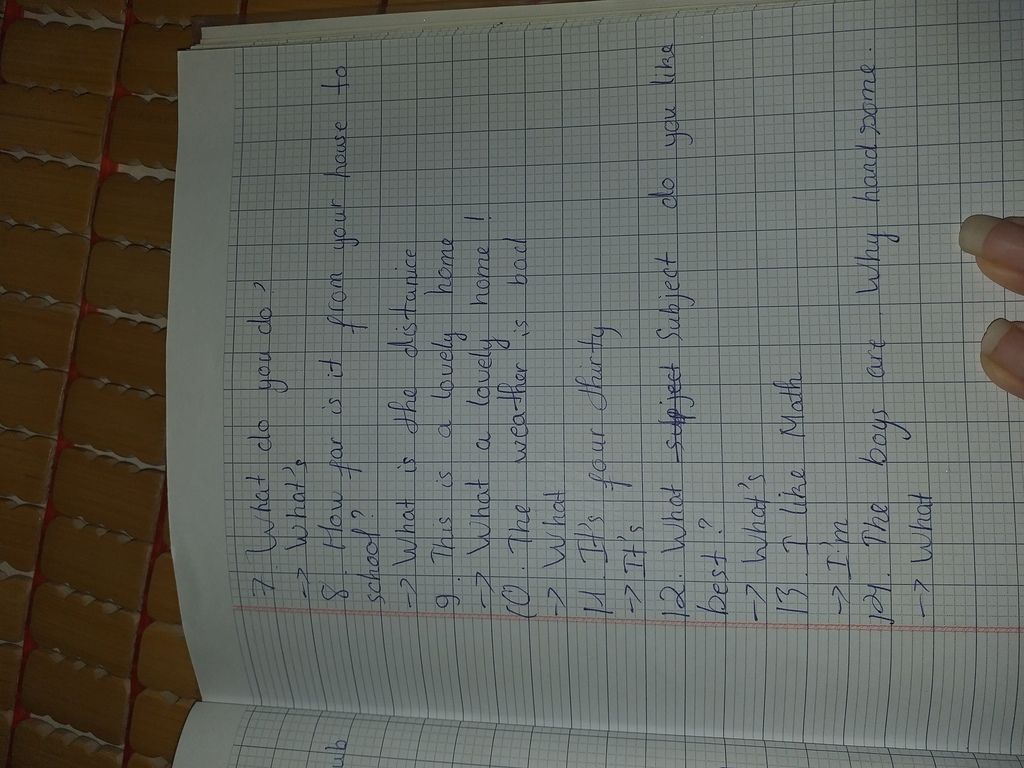 7. What do you do?
-> What's
8. How far is it from your house to
school?
-> What is the distance
9. This is a lovely home
-> What a lovely home!
10. The weather is bad
-> What
11. It's four thirty
-> It's
12. What Subject do you like
best?
-> What's
13. I like Math
-> I'm
14. The boys are Why handsome.
-> What
ub